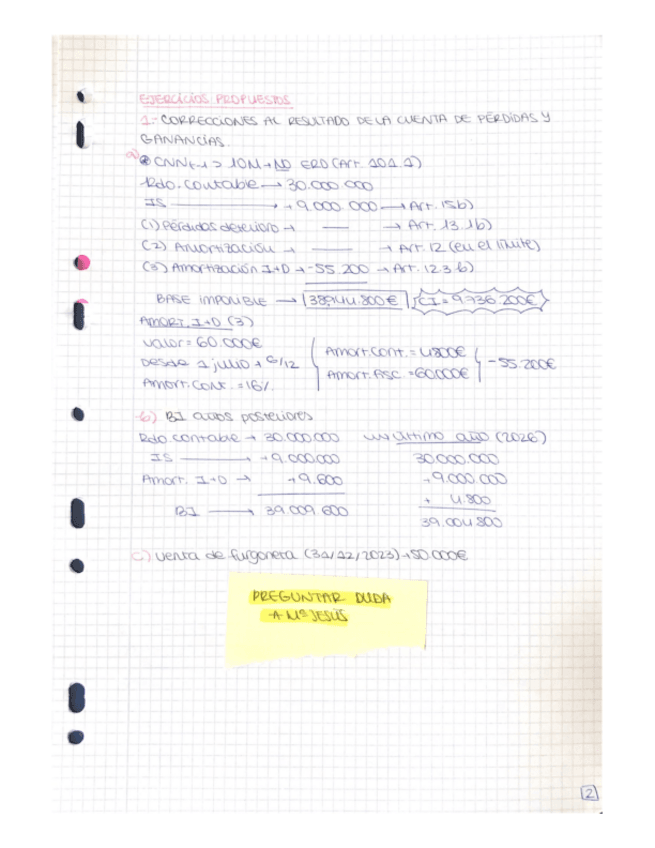 EJERCICIOS PROPUESTOS
1.- CORRECCIONES AL RESULTADO DE LA CUENTA DE PÉRDIDAS Y
GANANCIAS.
a) CNNt-1 > 10M → NO ERD (Art. 101.1)
Rdo. contable → 30.000.000
IS → +9.000.000 → Art. 15b)
(1) Pérdidas deterioro → — → Art. 13.1b)
(2) Amortización → — → Art. 12 (en el límite)
(3) Amortización I+D → -55.200 → Art. 12.3 b)
BASE IMPONIBLE → 38.944.800€ CI = 9.736.200€
AMORT. I+D (3)
Valor = 60.000€
Desde 1 julio → 6/12
Amort. Cont. = 16%
Amort. Cont. = 4.800€
Amort. Fisc = 60.000€
-55.200€
b) BI años posteriores
Rdo. contable → 30.000.000 último año (2026)
IS → +9.000.000 30.000.000
Amort. I+D → +9.600 +9.000.000
+ 4.800
BI → 39.009.600 39.004.800
c) Venta de furgoneta (31/12/2023) → 50.000€
PREGUNTAR DUDA
A Mª JESÚS
2